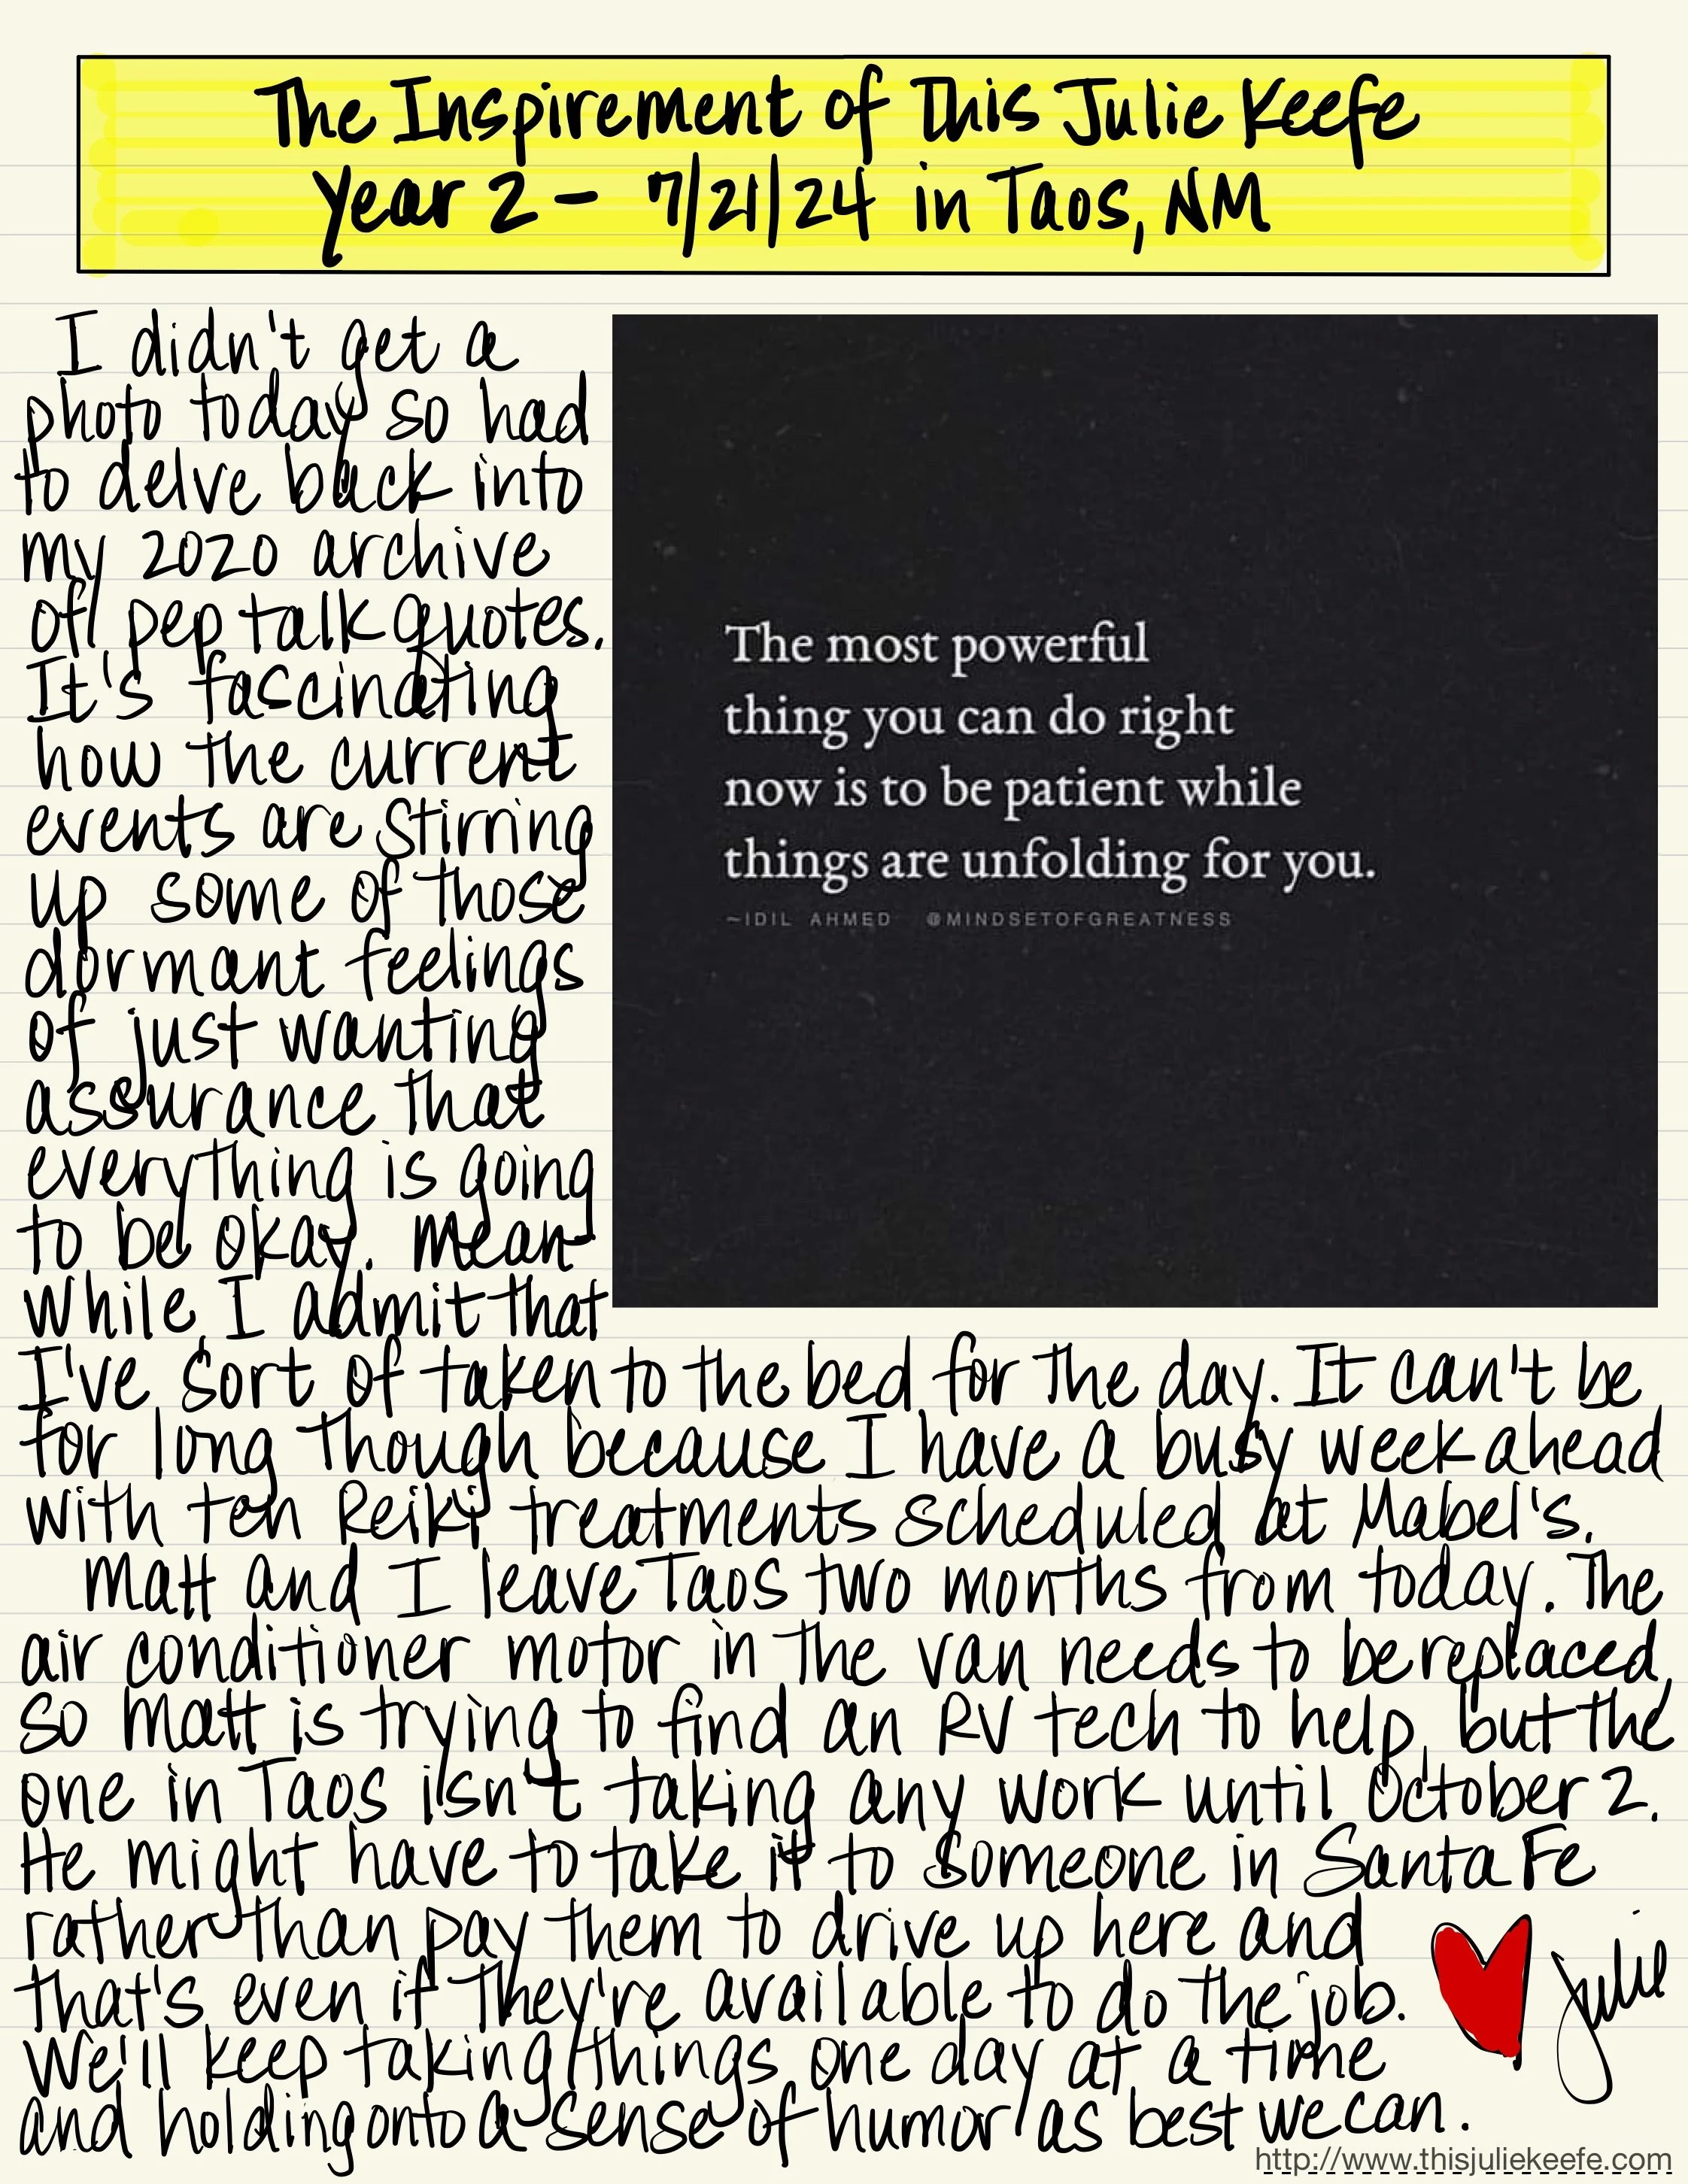 The Inspirement of This Julie Keefe
Year 2 - 7/21/24 in Taos, NM
I didn't get a
photo today so had
to delve back into
my 2020 archive
of pep talk quotes.
It's fascinating
how the current
events are stirring
up some of those
dormant feelings
of just wanting
assurance that
everything is going
to be okay. Mean-
while, I admit that
The most powerful
thing you can do right
now is to be patient while
things are unfolding for you.
~IDIL AHMED @MINDSETOFGREATNESS
I've sort of taken to the bed for the day. It can't be
for long though because I have a busy week ahead
with ten Reiki treatments scheduled at Mabel's.
Matt and I leave Taos two months from today. The
air conditioner motor in the van needs to be replaced,
so Matt is trying to find an RV tech to help, but the
one in Taos isn't taking any work until October 2.
He might have to take it to someone in Santa Fe
rather than pay them to drive up here and
that's even if they're available to do the job.
We'll keep taking things one day at a time
and holding onto a sense of humor as best we can.
Julie
http://www.thisjuliekeefe.com